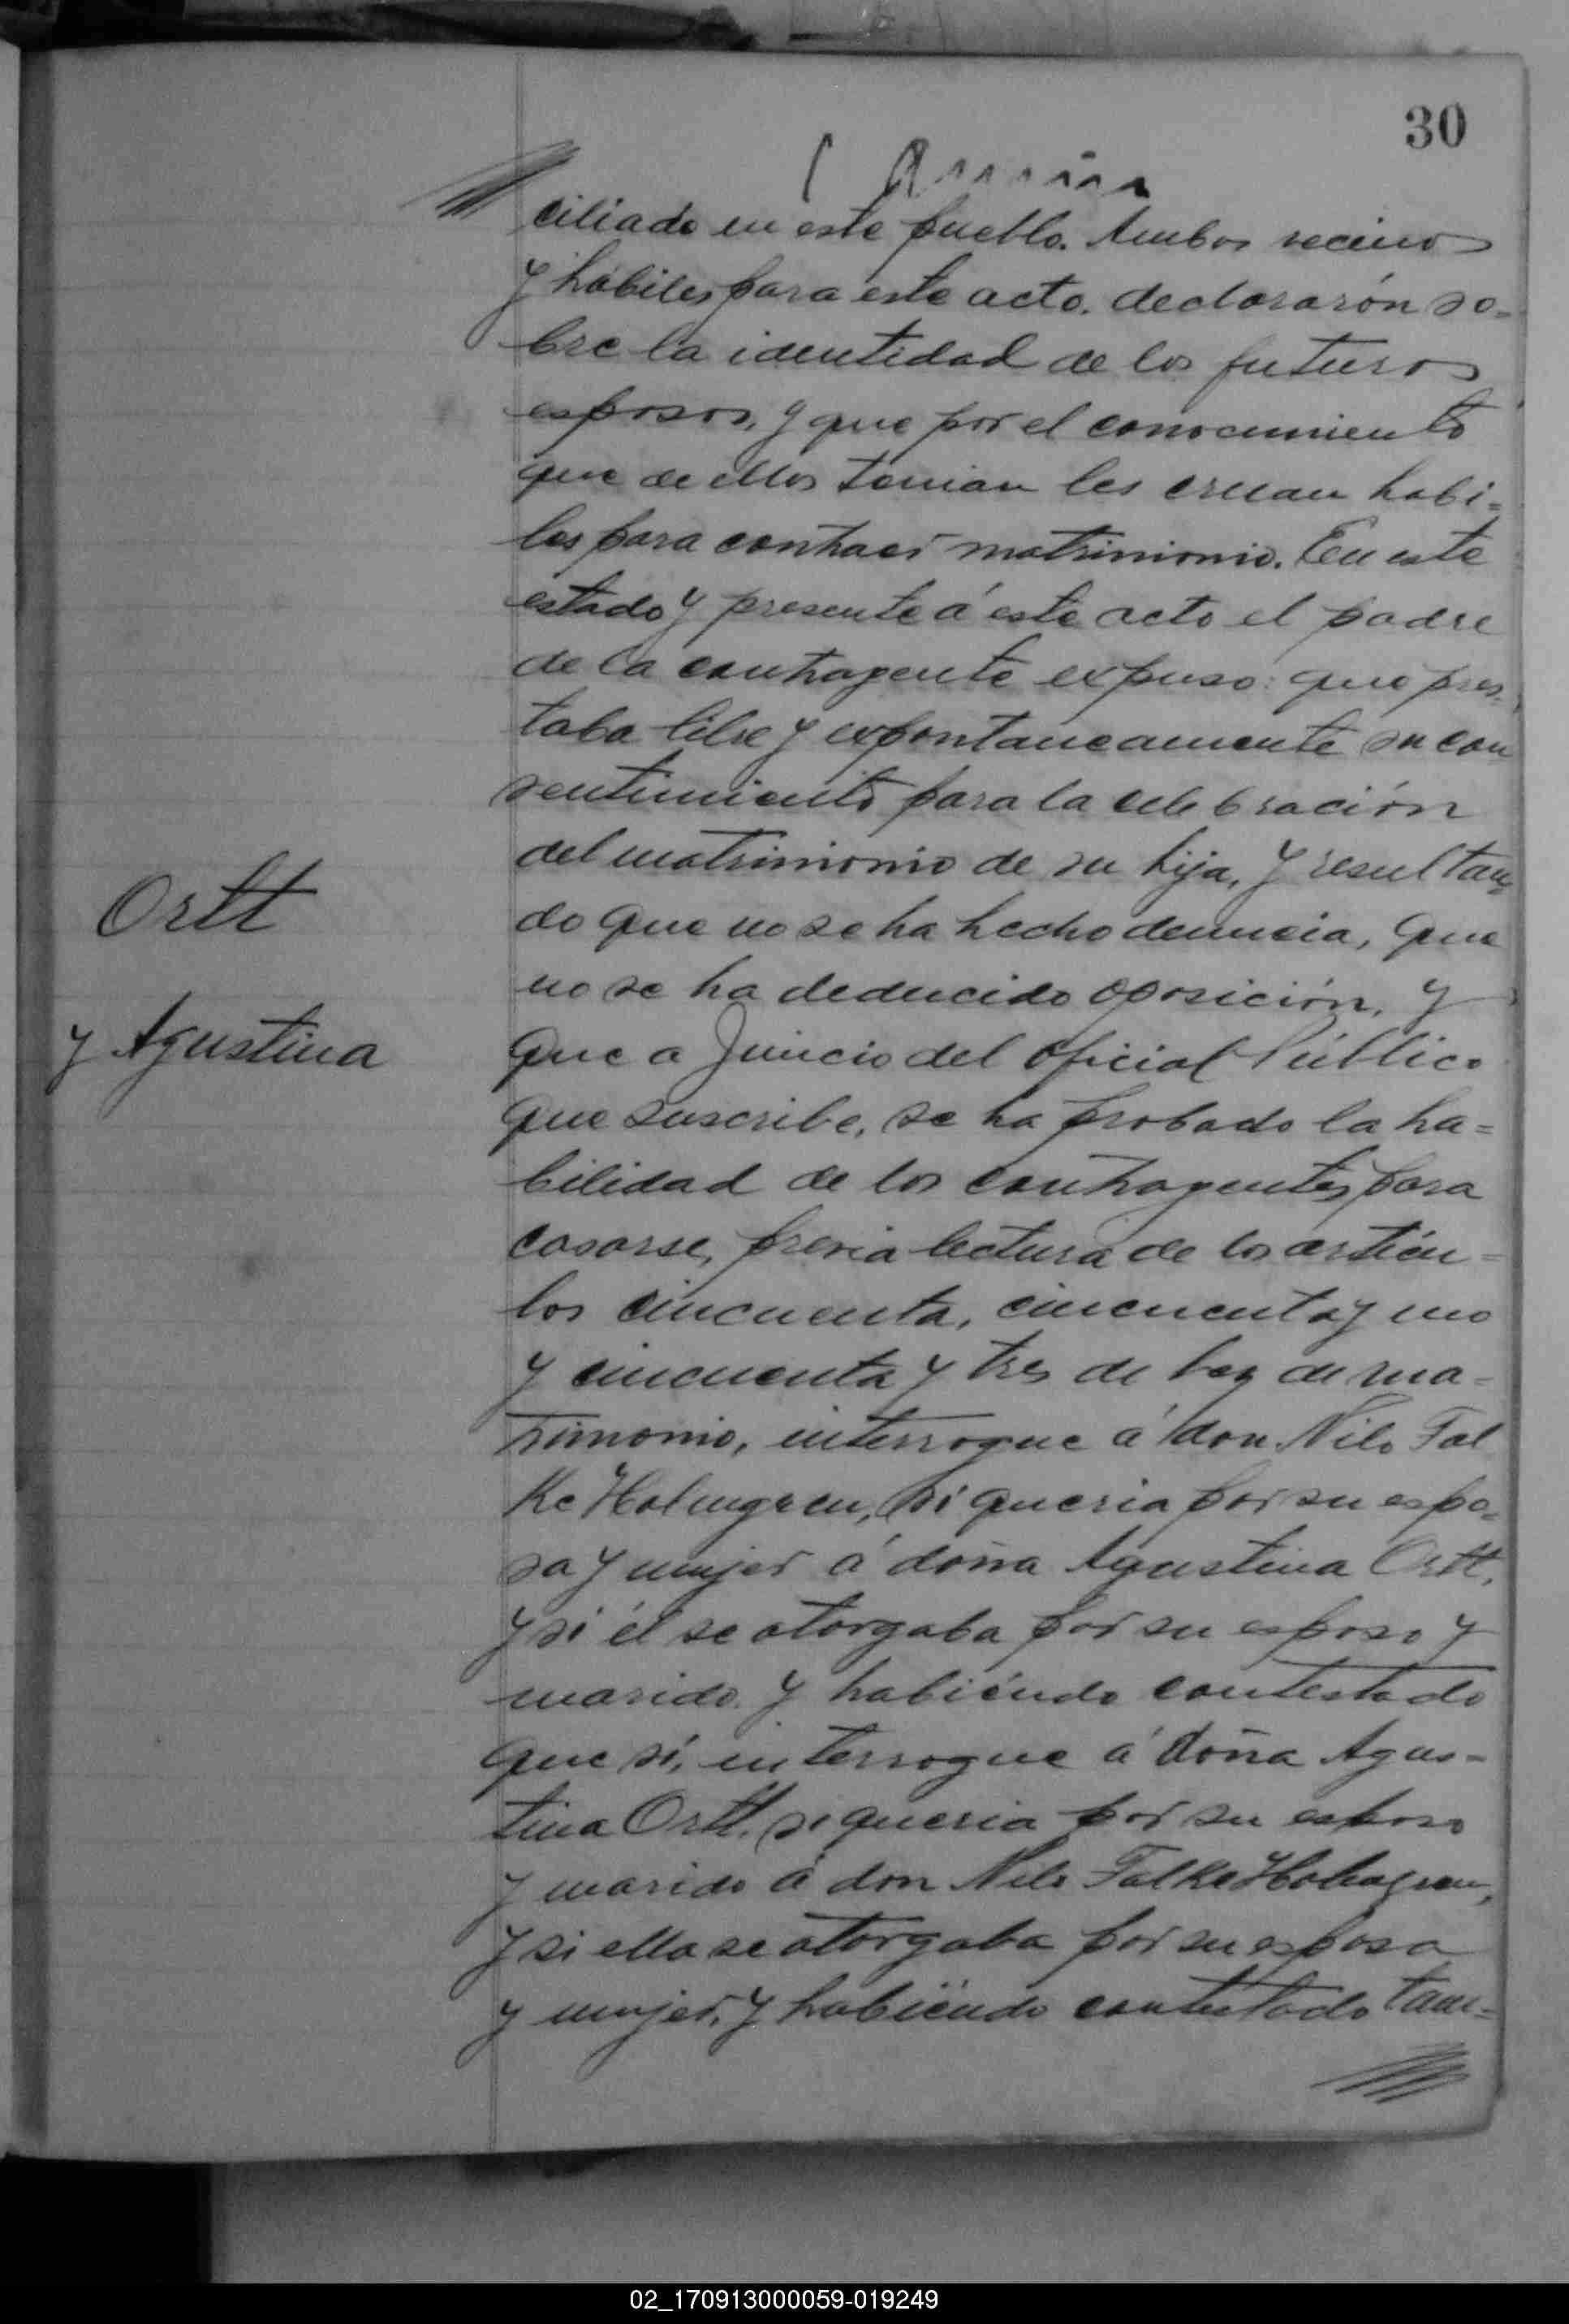 30
ciliado en este pueblo. Ambos vecinos
y hábiles para este acto. declararón so=
bre la identidad de los futuros
esposos, y que por el conocimiento
que de ellos tenian les creian habi=
les para contraer matrimonio. En este
estado y presente á este acto el padre
de la contrayente expuso: que pres=
taba libre y expontaneamente su con
sentimiento para la celebración
del matrimonio de su hija, y resultan=
do que no se ha hecho denuncia, que
no se ha deducido oposición, y
que a Juicio del Oficial Público
que suscribe, se ha probado la ha=
bilidad de los contrayentes para
casarse, previa lectura de los artícu=
los cincuenta, cincuenta y uno
y cincuenta y tres de ley de ma=
trimonio, interrogue á don Nils Fal
ke Holmgren, si queria por su espo=
sa y mujer á doña Agustina Ortt,
y si él se otorgaba por su esposo y
marido y habiéndo contestado
que sí, interrogue á doña Agus=
tina Ortt, si queria por su esposo
y marido á don Nils Falke Holmgren,
y si ella se otorgaba por su esposa
y mujer, y habiéndo contestado tam=
Ortt
y Agustina
02_170913000059-019249